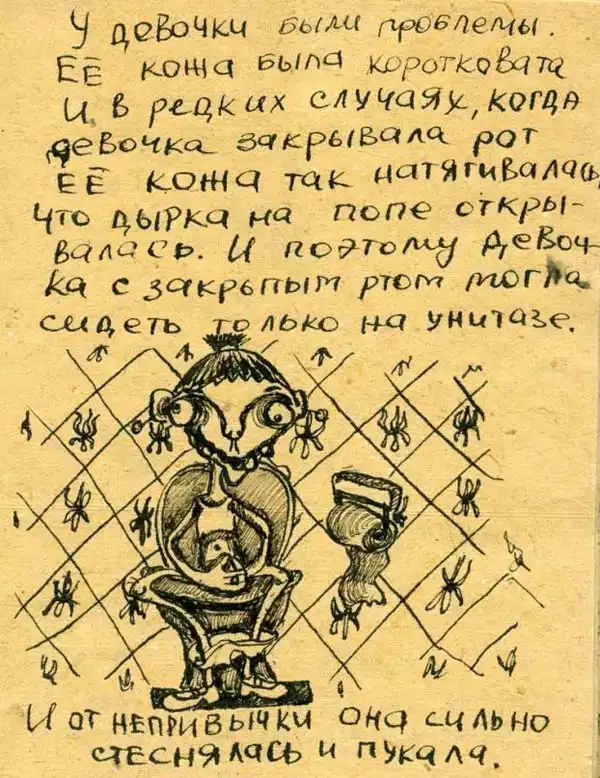 У девочки были проблемы.
Её кожа была коротковата
И в редких случаях, когда
девочка закрывала рот
Её кожа так натягивалась,
что дырка на попе откры-
валась. И поэтому девоч-
ка с закрытым ртом могла
сидеть только на унитазе.
И от непривычки она сильно
стеснялась и пукала.